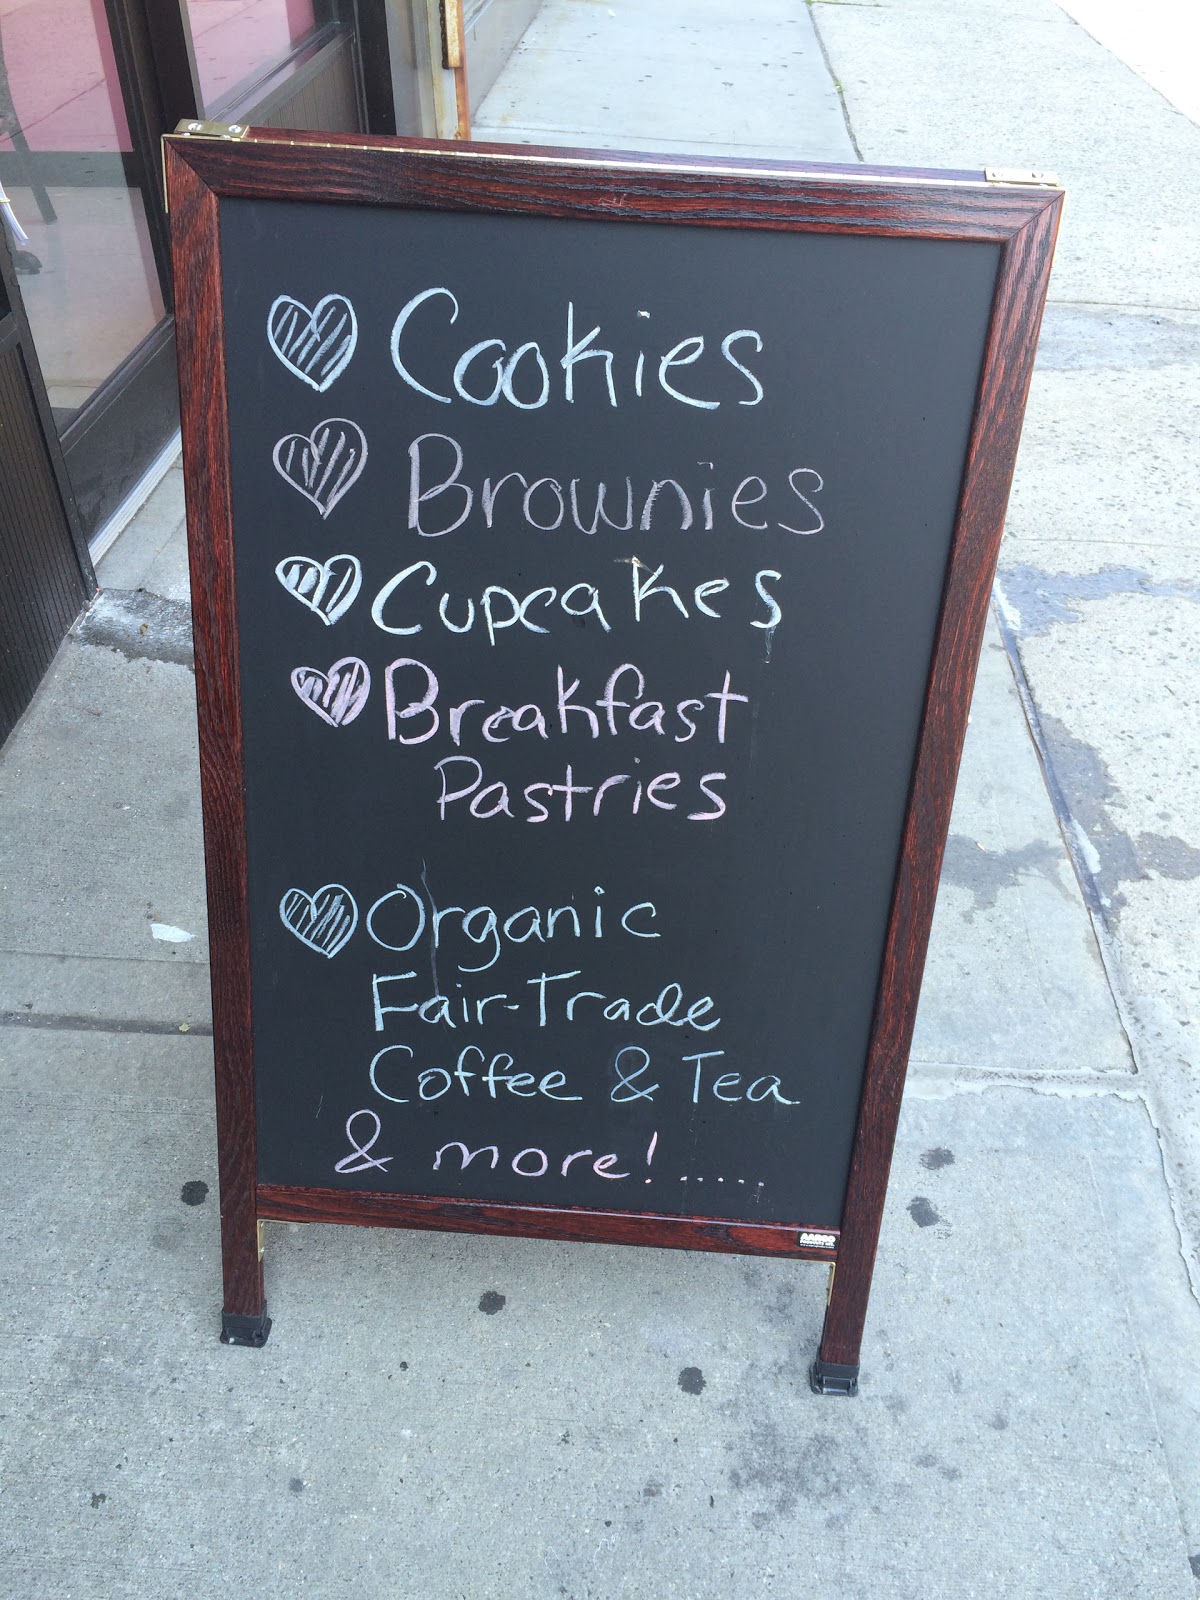 Cookies
Brownies
Cupcakes
Breakfast
Pastries
Organic
Fair-Trade
Coffee & Tea
& more!.....
AARCO